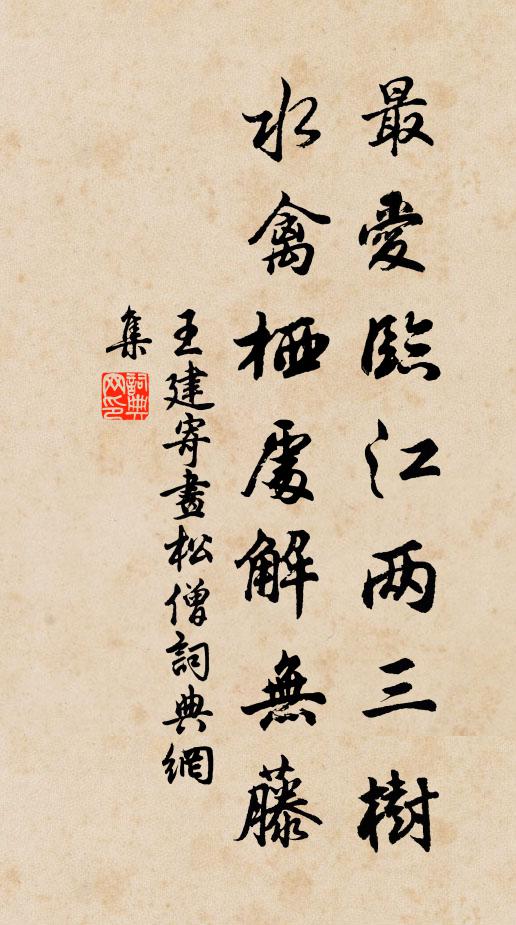 最愛臨江两三樹
水禽栖處解無藤
王建寄畫松僧詞典網
集
詞典
网印